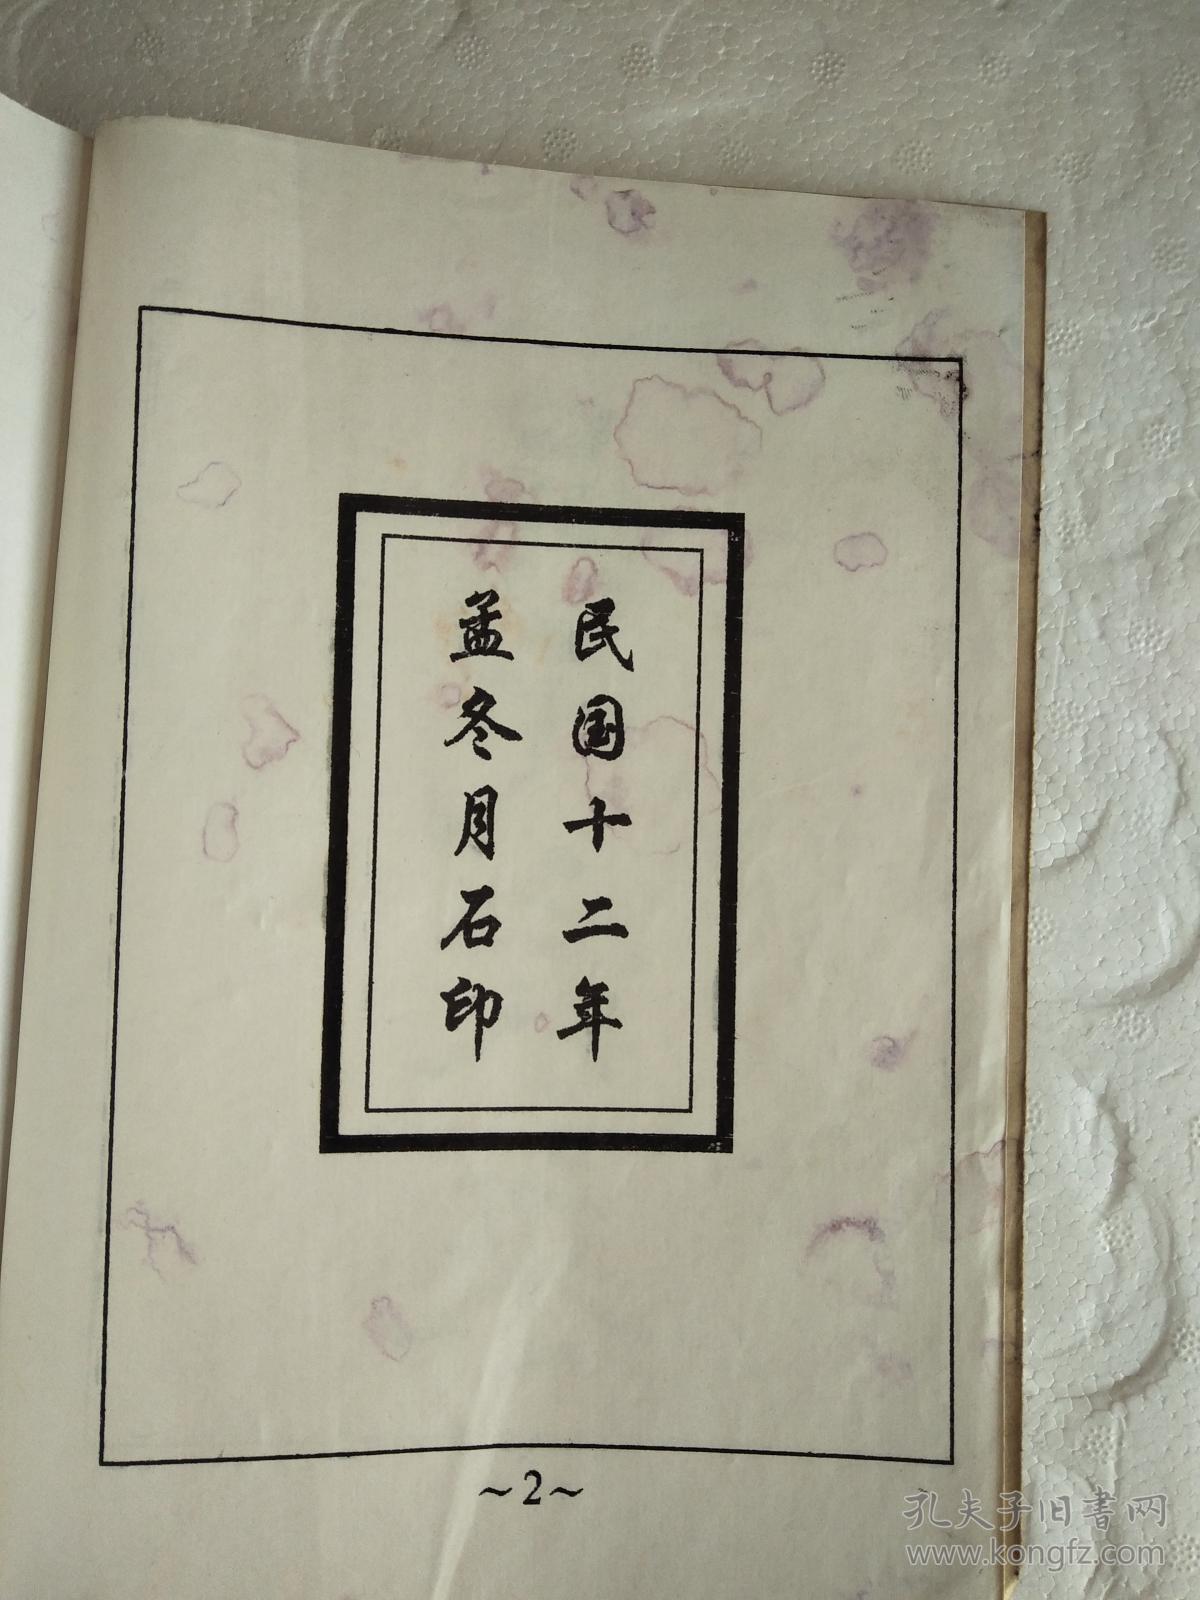 民国十二年
孟冬月石印
～2～
孔夫子旧书网
www.kongfz.com